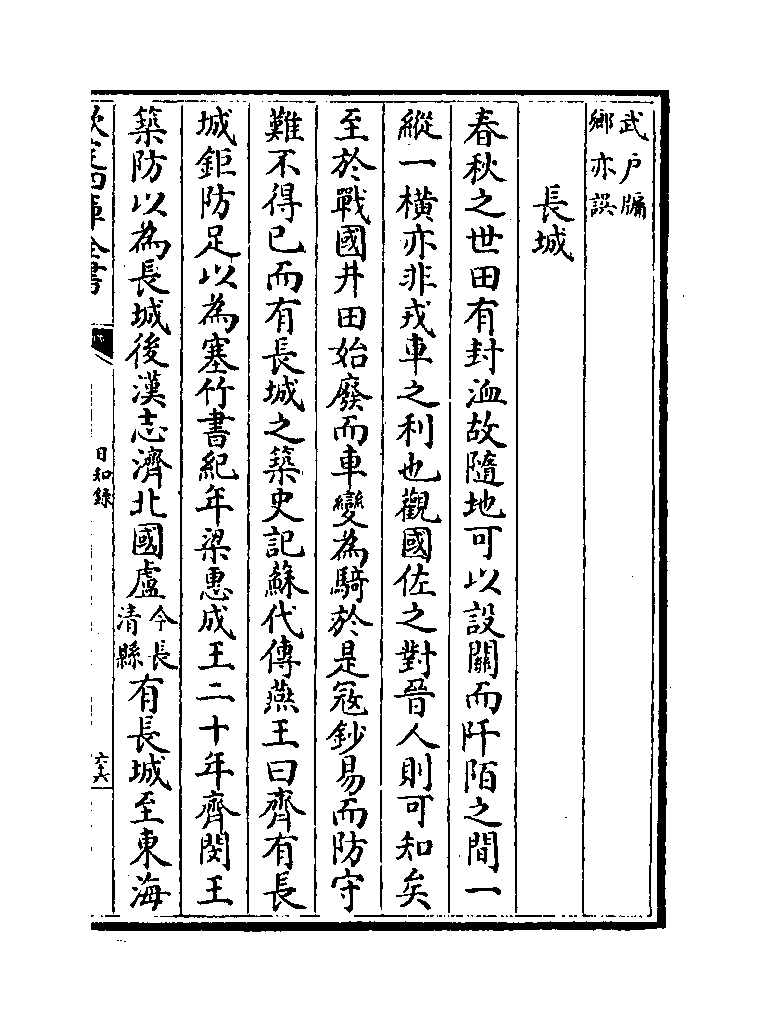 武戶牖
鄉亦誤
長城
春秋之世田有封洫故隨地可以設關而阡陌之間一
縱一橫亦非戎車之利也觀國佐之對晉人則可知矣
至於戰國井田始廢而車變為騎於是寇鈔易而防守
難不得已而有長城之築史記蘇代傳燕王曰齊有長
城鉅防足以為塞竹書紀年梁惠成王二十年齊閔王
築防以為長城後漢志濟北國盧今長清縣有長城至東海
欽定四庫全書
日知錄
六六